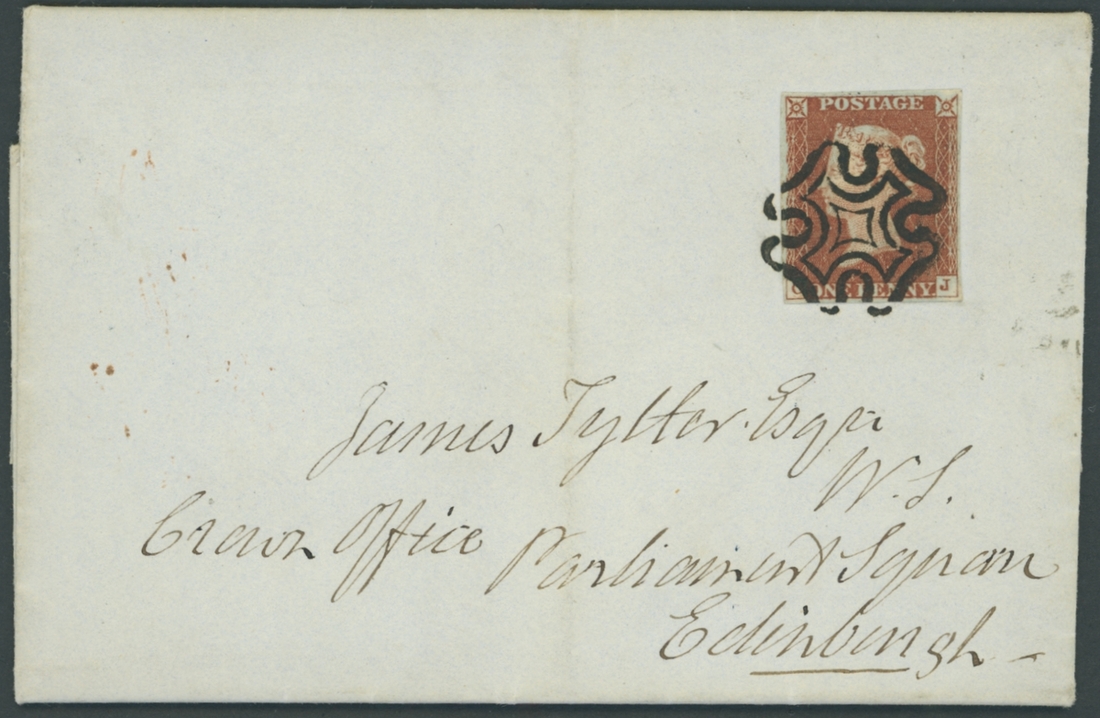 POSTAGE
ONE PENNY J
James Tytler Esqr
W.S.
Crown Office Parliament Square
Edinburgh